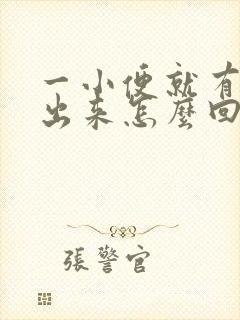 一小便就有
出来怎麼回
張警官